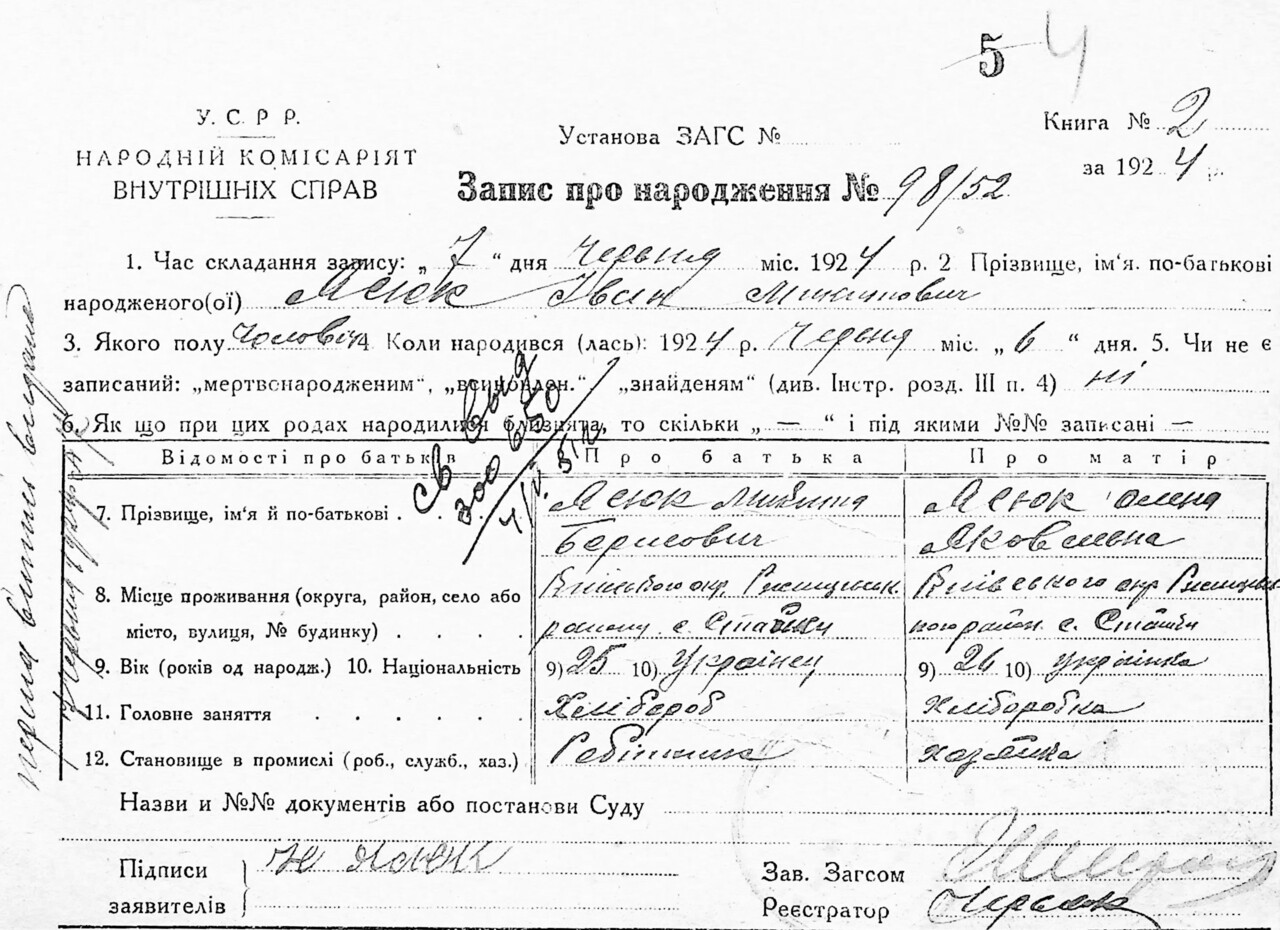 5 4
У. С. Р. Р.
НАРОДНІЙ КОМІСАРІЯТ
ВНУТРІШНІХ СПРАВ
Установа ЗАГС №
Книга № 2
за 1924 р.
Запис про народження № 98/52
1. Час складання запису: „ 7 “ дня Червня міс. 1924 р. 2 Прізвище, ім'я. по-батькові
народженого(ої) Ясюк Іван Микитович
3. Якого полу чоловіч 4 Коли народився (лась): 1924 р. Червня міс. „ 6 “ дня. 5. Чи не є
записаний: „мертвонародженим“, „всиновлен.“ „знайденям“ (див. Інстр. розд. III п. 4) ні
6. Як що при цих родах народилися близнята, то скільки „ — “ і під якими №№ записані —
Відомості про батьків Про батька Про матір
7. Прізвище, ім'я й по-батькові . Ясюк Микита Ясюк Олена
Борисович Яковлевна
8. Місце проживання (округа, район, село або Київського окр. Ржищівськ. Київського окр Ржищівсь
місто, вулиця, № будинку) . . . . району с. Стайки кого район с. Стайки
9. Вік (років од народж.) 10. Національність 9) 25 10) Українец 9) 26 10) українка
11. Головне заняття . . . . . . Хлібороб Хліборобка
12. Становище в промислі (роб., служб., хаз.) Робітник хазяйка
Назви и №№ документів або постанови Суду
Підписи
заявителів
Ясюк
Зав. Загсом
Реєстратор
св выд